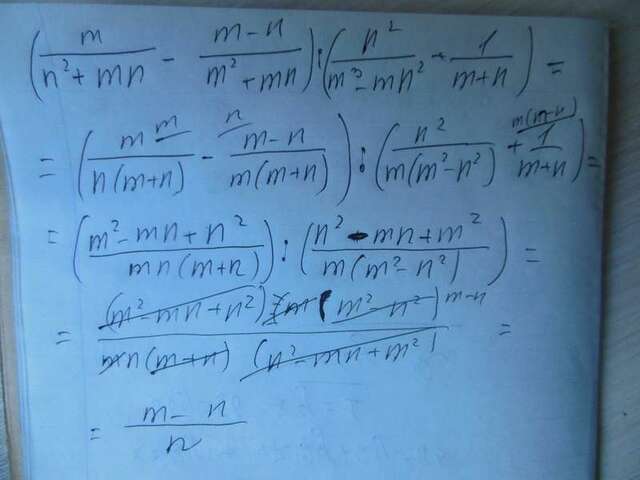 (m/(n² + mn) - (m - n)/(m² + mn)) : (n²/(m³ - mn²) + 1/(m+n)) =
= (m^m/(n(m+n)) - ^n (m-n)/(m(m+n))) : (n²/(m(m²-n²)) + ^m(m-n) 1/(m+n)) =
= ((m² - mn + n²)/(mn(m+n))) : ((n² - mn + m²)/(m(m²-n²))) =
= ((m² - mn + n²) m (m² - n²) ^m-n)/(mn(m+n) (n² - mn + m²)) =
= (m - n)/n